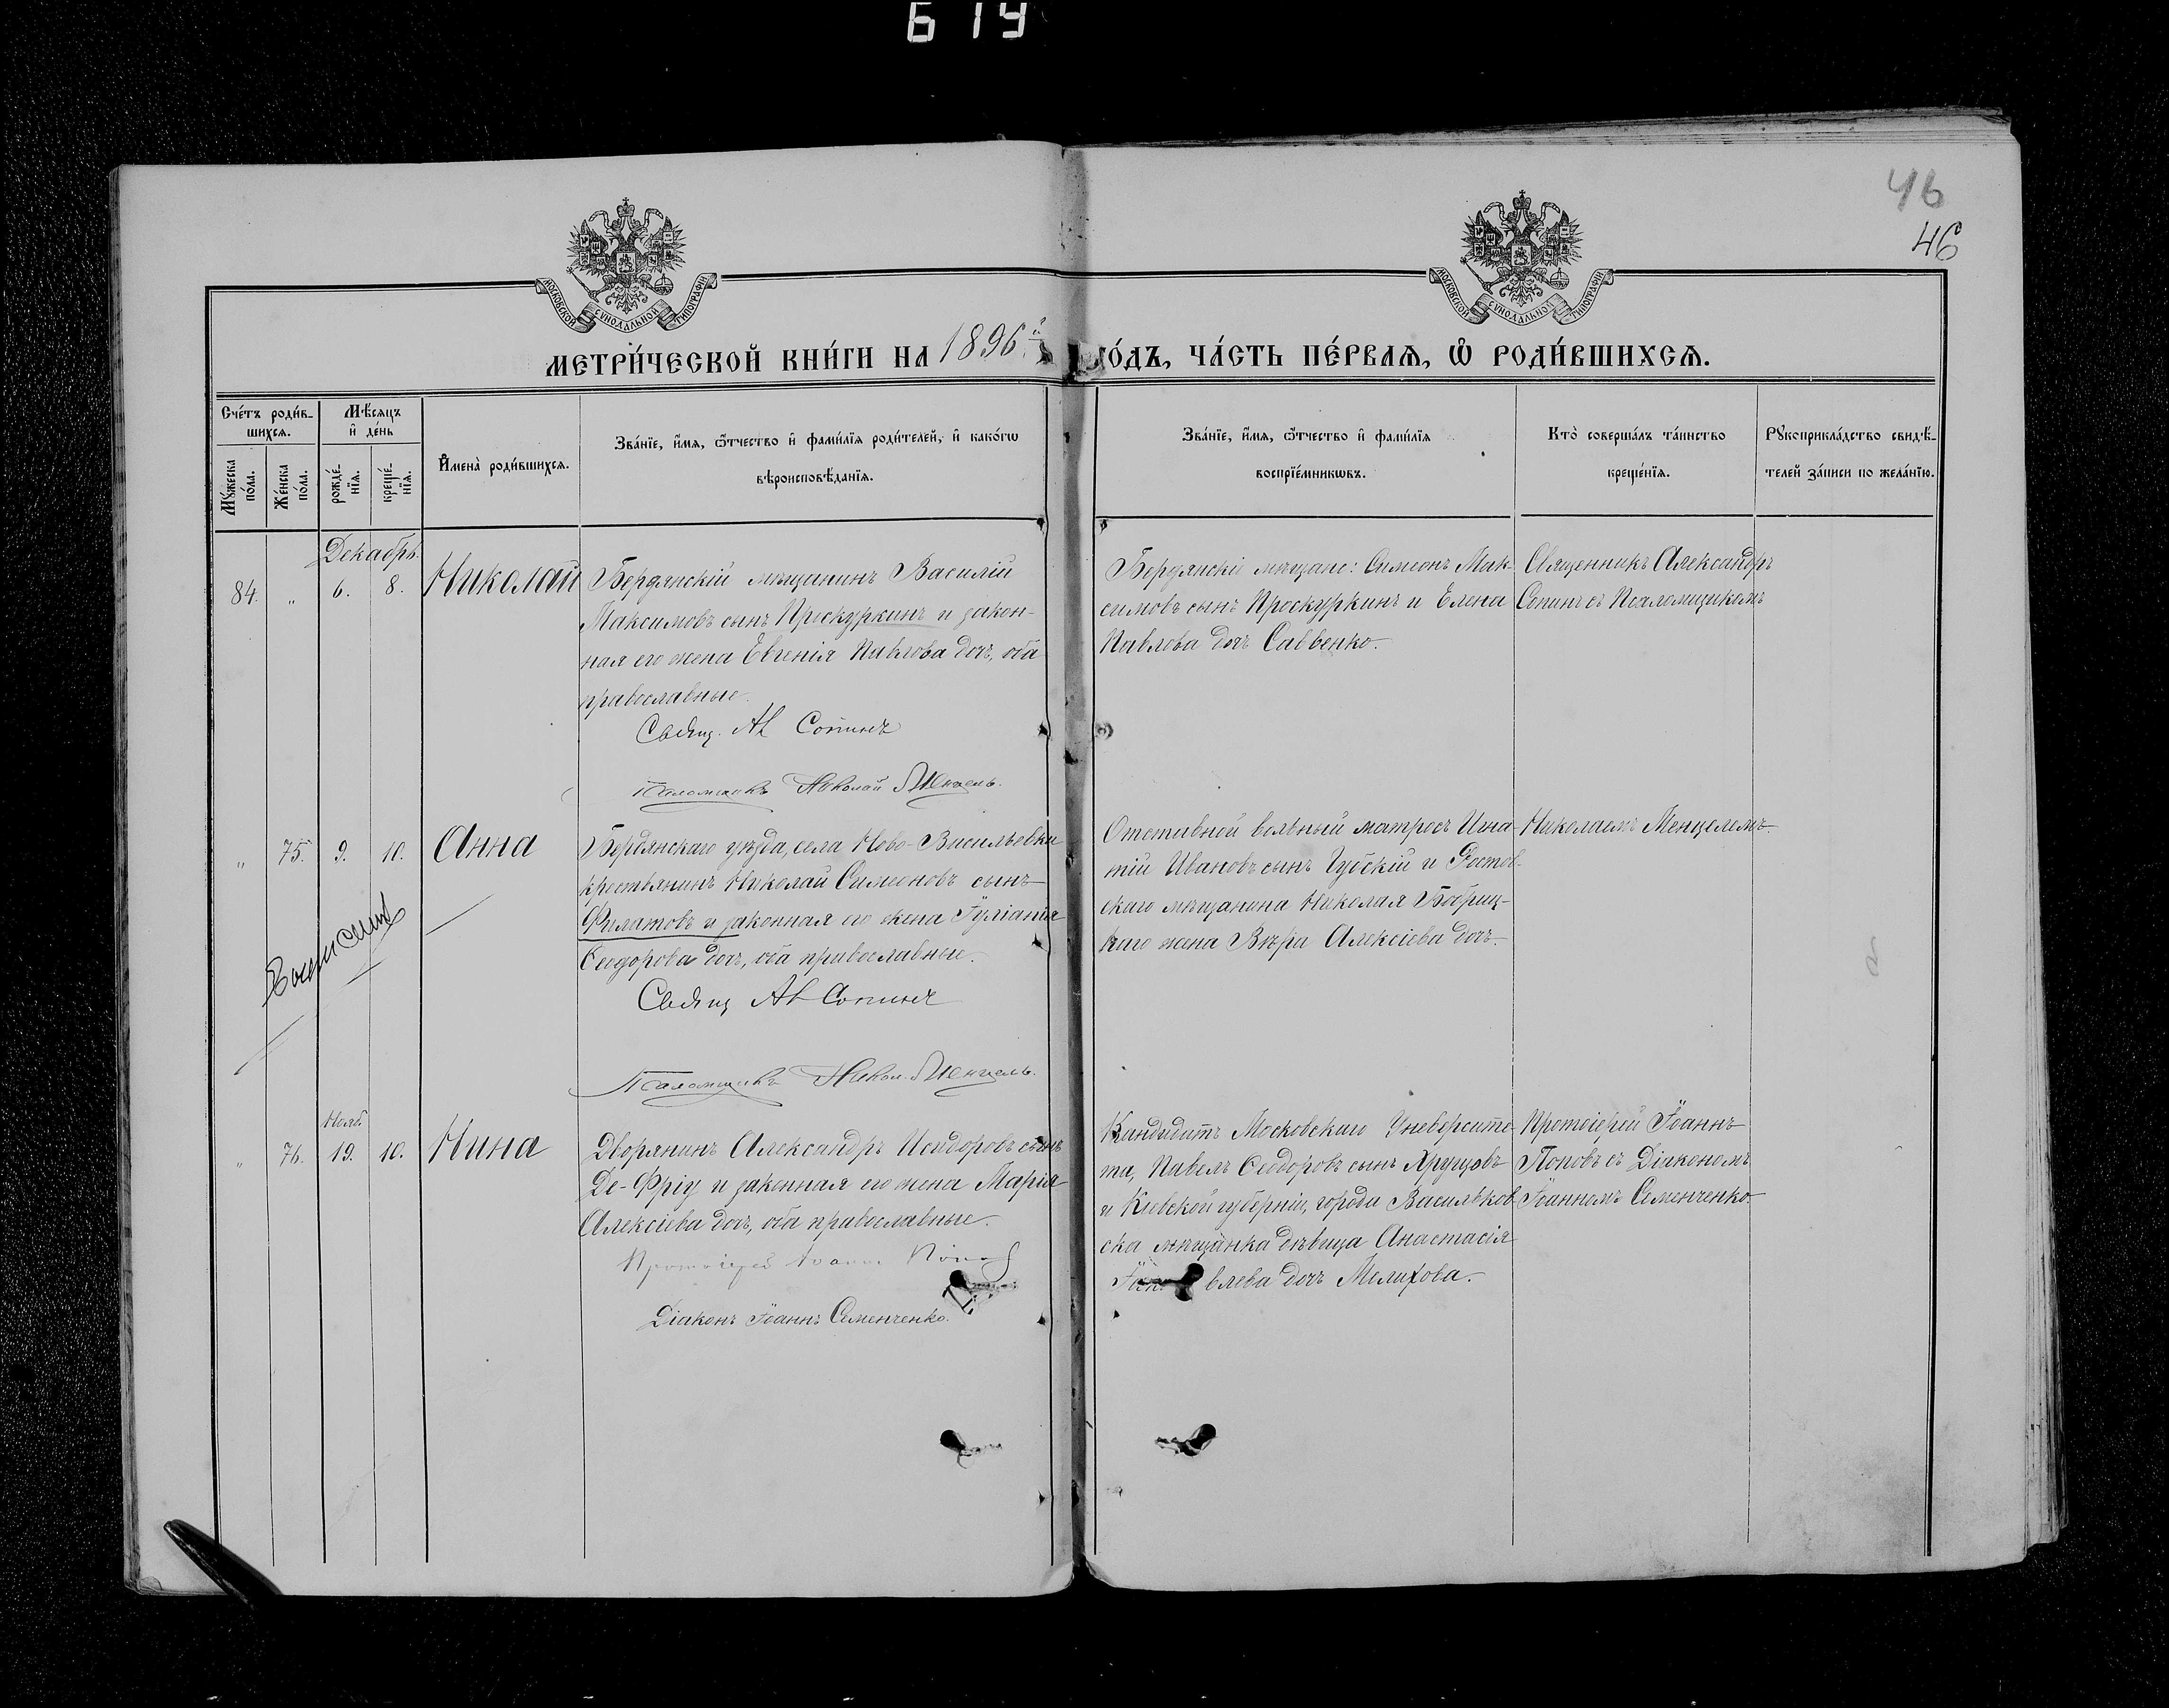 619
46
46
МОСКОВСКОЙ СѴНОДАЛЬНОЙ ТИПОГРАФІИ
МОСКОВСКОЙ СѴНОДАЛЬНОЙ ТИПОГРАФІИ
МЕТРИ́ЧЕСКОЙ КНИ́ГИ НА 1896й ГО́ДЪ, ЧА́СТЬ ПЕ́РВАѦ, Ѡ РОДИ́ВШИХСѦ.
Сче́тъ роди́в-
шихсѧ.
Мꙋ́жеска по́ла.
Же́нска по́ла.
Мѣ́сѧцъ и де́нь
рожде́-
нїѧ.
креще́-
нїѧ.
Имена̀ роди́вшихсѧ.
Зва́нїе, и́мѧ, ѻ́тчество и фами́лїѧ роди́телей, и како́гѡ
вѣроисповѣ́данїѧ.
Зва́нїе, и́мѧ, ѻ́тчество и фами́лїѧ
воспрїе́мникѡвъ.
Кто̀ соверша́лъ та́инство
креще́нїѧ.
Рꙋкоприкла́дство свидѣ́-
телей за́писи по жела́нїю.
Декабрь.
84. „ 6. 8. Николай
Бердянскій мѣщанинъ Василій
Максимовъ сынъ Проскуркинъ и закон-
ная его жена Евгенія Павлова дочь, оба
православные.
Свящ. Ал Сопинъ
Псаломщикъ Николай Менцель.
Бердянскіе мѣщане: Симеонъ Мак-
симовъ сынъ Проскуркинъ и Елена
Павлова дочь Саввенко.
Священникъ Александръ
Сопинъ съ Псаломщикомъ
Николаемъ Менцелемъ.
„ 75. 9. 10. Анна
Бердянскаго уѣзда, села Ново-Васильевки
крестьянинъ Николай Симеоновъ сынъ
Филатовъ и законная его жена Іуліанія
Ѳеодорова дочь, оба православные.
Свящ Ал Сопинъ
Псаломщикъ Никол. Менцель.
Отставной вольный матросъ Игна-
тій Ивановъ сынъ Губскій и Ростов-
скаго мѣщанина Николая Бобриц-
каго жена Вѣра Алексіева дочь.
Нояб.
„ 76. 19. 10. Нина
Дворянинъ Александръ Исидоровъ сынъ
Де-Фріу и законная его жена Марія
Алексіева дочь, оба православные.
Протоіерей Іоаннъ Поповъ
Діаконъ Іоаннъ Семенченко.
Кандидатъ Московскаго Университе-
та, Павелъ Ѳеодоровъ сынъ
и Кіевской губерніи, города Васильков-
ска мѣщанка дѣвица Анастасія
влева дочь Мелихова.
Протоіерей Іоаннъ
Поповъ съ Діакономъ
Іоанномъ Семенченко.